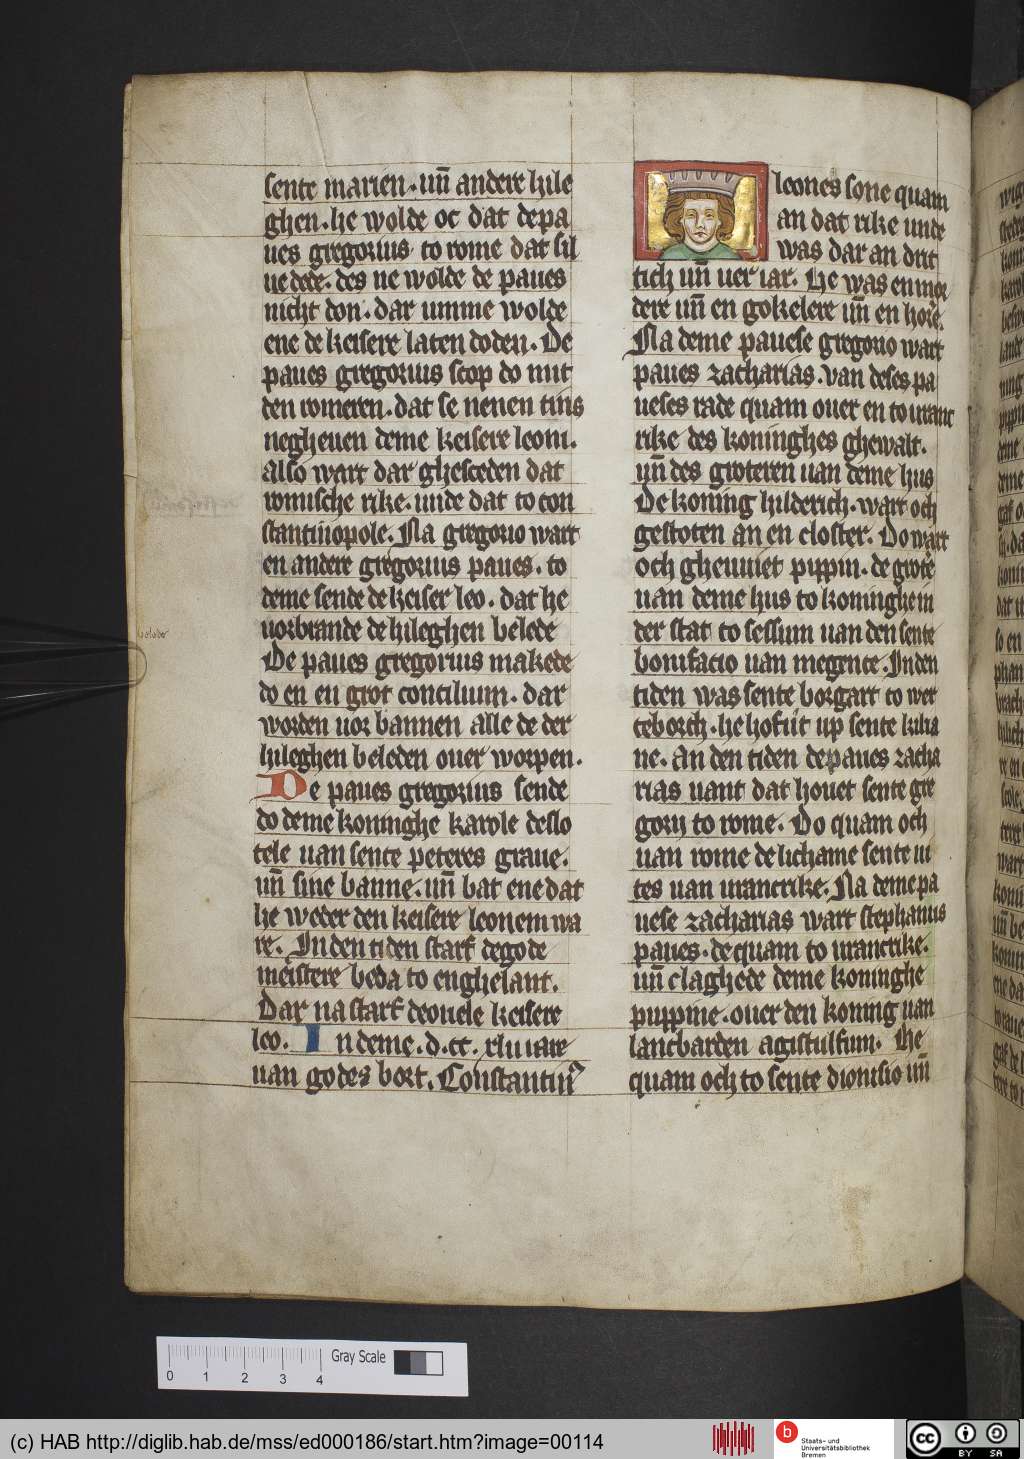 sente marien. un̄ andere hile
ghen. he wolde oc dat de pa
ues gregorius to rome dat sil
ue dede. des ne wolde de paues
nicht don. dar umme wolde
ene de keisere laten doden. De
paues gregorius scop do mit
den romeren. dat se nenen tins
negheuen deme keisere leoni.
also wart dar ghesceden dat
romische rike. unde dat to con
stantinopole. Na gregorio wart
en andere gregorius paues. to
deme sende de keiser leo. dat he
uorbrande de hileghen belede
De paues gregorius makede
do en en grot concilium. dar
worden uor bannen alle de der
hileghen beleden ouer worpen.
De paues gregorius sende
do deme koninghe karole de slo
tele uan sente peteres graue.
un̄ sine banne. un̄ bat ene dat
he weder den keisere leonem wa
re. In den tiden starf de gode
meistere beda to enghelant.
Dar na starf de ouele keisere
leo. In deme. d.cc. xlii iare
uan godes bort. Constantin⁹
leones sone quam
an dat rike unde
was dar an drit
tich un̄ uer iar. He was en mor
dere un̄ en gokelere un̄ en hore.
Na deme pauese gregorio wart
paues zacharias. van deses pa
ueses rade quam ouer en to uranc
rike des koninghes ghewalt.
un̄ des groteren uan deme hus
De koning hilderich. wart och
gestoten an en closter. Do wart
och ghewiet pippin. de grote
uan deme hus to koninghe in
der stat to sessun uan den sente
bonifacio uan megence. In den
tiden was sente borgart to wer
ceborch. he hof ut up sente kilia
ne. An den tiden de paues zacha
rias uant dat houet sente gre
gorij to rome. Do quam och
uan rome de lichame sente ui
tes uan urancrike. Na deme pa
uese zacharias wart stephanus
paues. de quam to urancrike.
un̄ claghede deme koninghe
puppine. ouer den koning uan
lancbarden agistulfum. He
quam och to sente dionisio un̄
belede
0 1 2 3 4
Gray Scale
(c) HAB http://diglib.hab.de/mss/ed000186/start.htm?image=00114
b
Staats- und
Universitätsbibliothek
Bremen
cc
BY SA